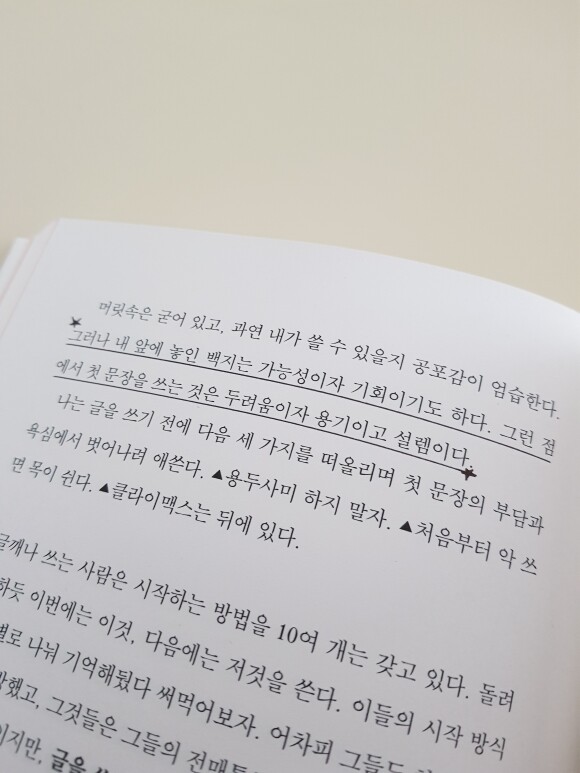 머릿속은 굳어 있고, 과연 내가 쓸 수 있을지 공포감이 엄습한다.
그러나 내 앞에 놓인 백지는 가능성이자 기회이기도 하다. 그런 점
에서 첫 문장을 쓰는 것은 두려움이자 용기이고 설렘이다.
나는 글을 쓰기 전에 다음 세 가지를 떠올리며 첫 문장의 부담과
욕심에서 벗어나려 애쓴다. ▲용두사미 하지 말자. ▲처음부터 악 쓰
면 목이 쉰다. ▲클라이맥스는 뒤에 있다.
글깨나 쓰는 사람은 시작하는 방법을 10여 개는 갖고 있다. 돌려
하듯 이번에는 이것, 다음에는 저것을 쓴다. 이들의 시작 방식
별로 나눠 기억해뒀다 써먹어보자. 어차피 그들도
했고, 그것들은 그들의
이지만,